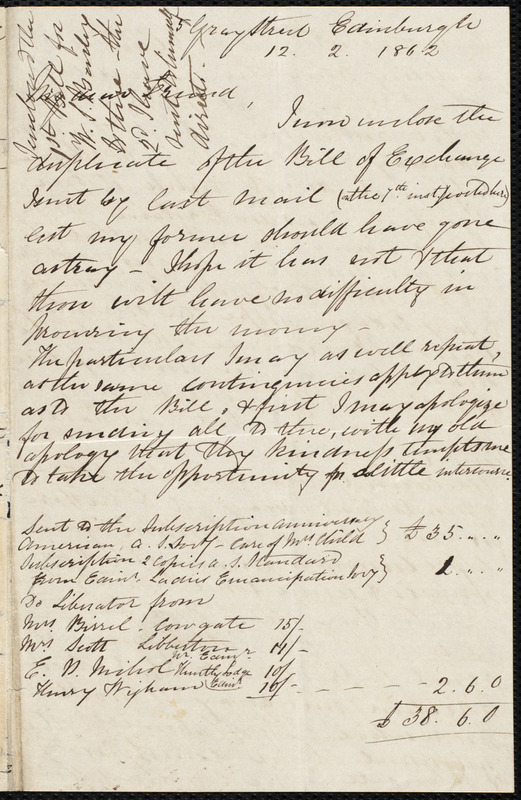 Gray Street Edinburgh
12. 2. 1862
the
1st Bill for
W. S. Bailey
to thee - the
2d I have
direct.
My dear Friend,
I now enclose the
duplicate of the Bill of Exchange
I sent by last mail
lest my former should have gone
astray - I hope it has not & that
thou will have no difficulty in
procuring the money -
The particulars I may as well repeat,
as the same contingencies apply to them
as to the Bill, & first I may apologize
for sending all to thee, with my old
apology that thy kindness tempts me
to take the opportunity for a little intercourse.
Sent to the Subscription anniversary
American A. S. Socy - care of Mrs Child } £35 " "
Subscription 2 copies A. S. Standard
from Edinr. Ladies Emancipation Socy } 1 " "
Do Liberator from
Mrs. Birrel - Cowgate 15/-
Mrs Scott Libberton nr. Edinr. 11/-
E. P. Nichol Huntly Lodge Edinr. 10/-
Henry Wigham 10/- - - - - 2.6.0
£38.6.0